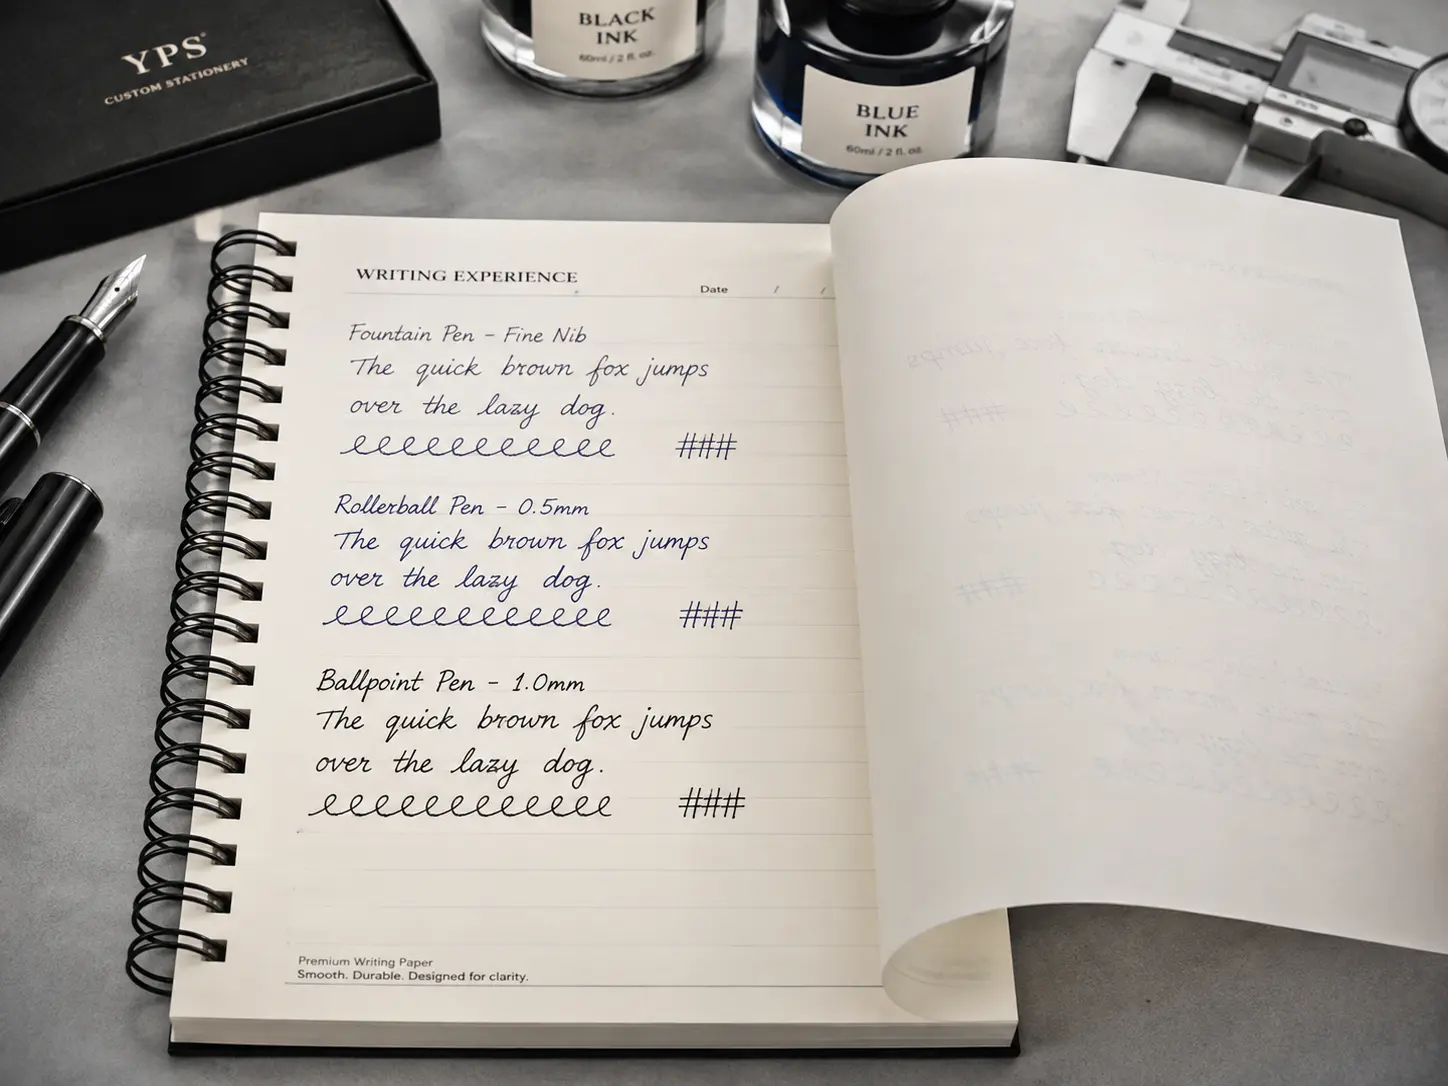 YPS
CUSTOM STATIONERY
BLACK
INK
60ml / 2 fl. oz.
BLUE
INK
60ml / 2 fl. oz.
WRITING EXPERIENCE
Date / /
Fountain Pen - Fine Nib
The quick brown fox jumps
over the lazy dog.
###
Rollerball Pen - 0.5mm
The quick brown fox jumps
over the lazy dog.
###
Ballpoint Pen - 1.0mm
The quick brown fox jumps
over the lazy dog.
###
Premium Writing Paper
Smooth. Durable. Designed for clarity.